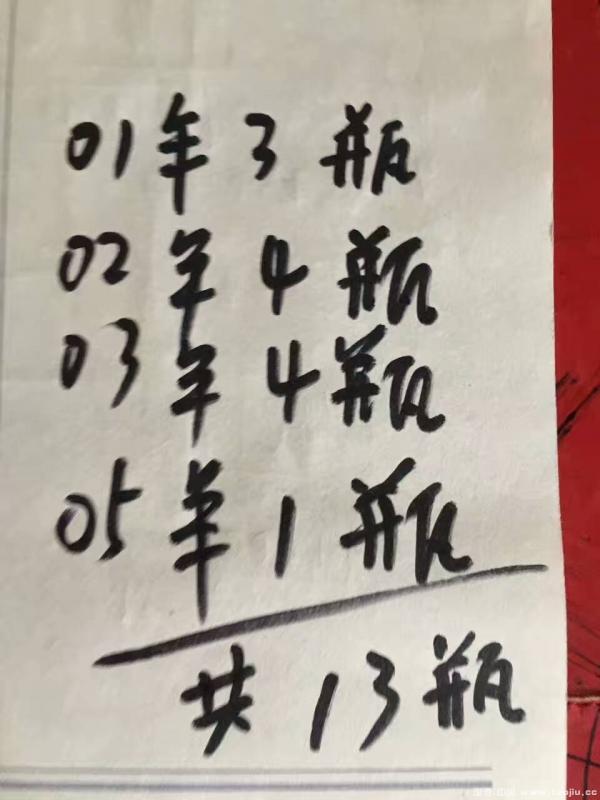 01年 3 瓶
02年 4 瓶
03年 4 瓶
05年 1 瓶
共 13 瓶